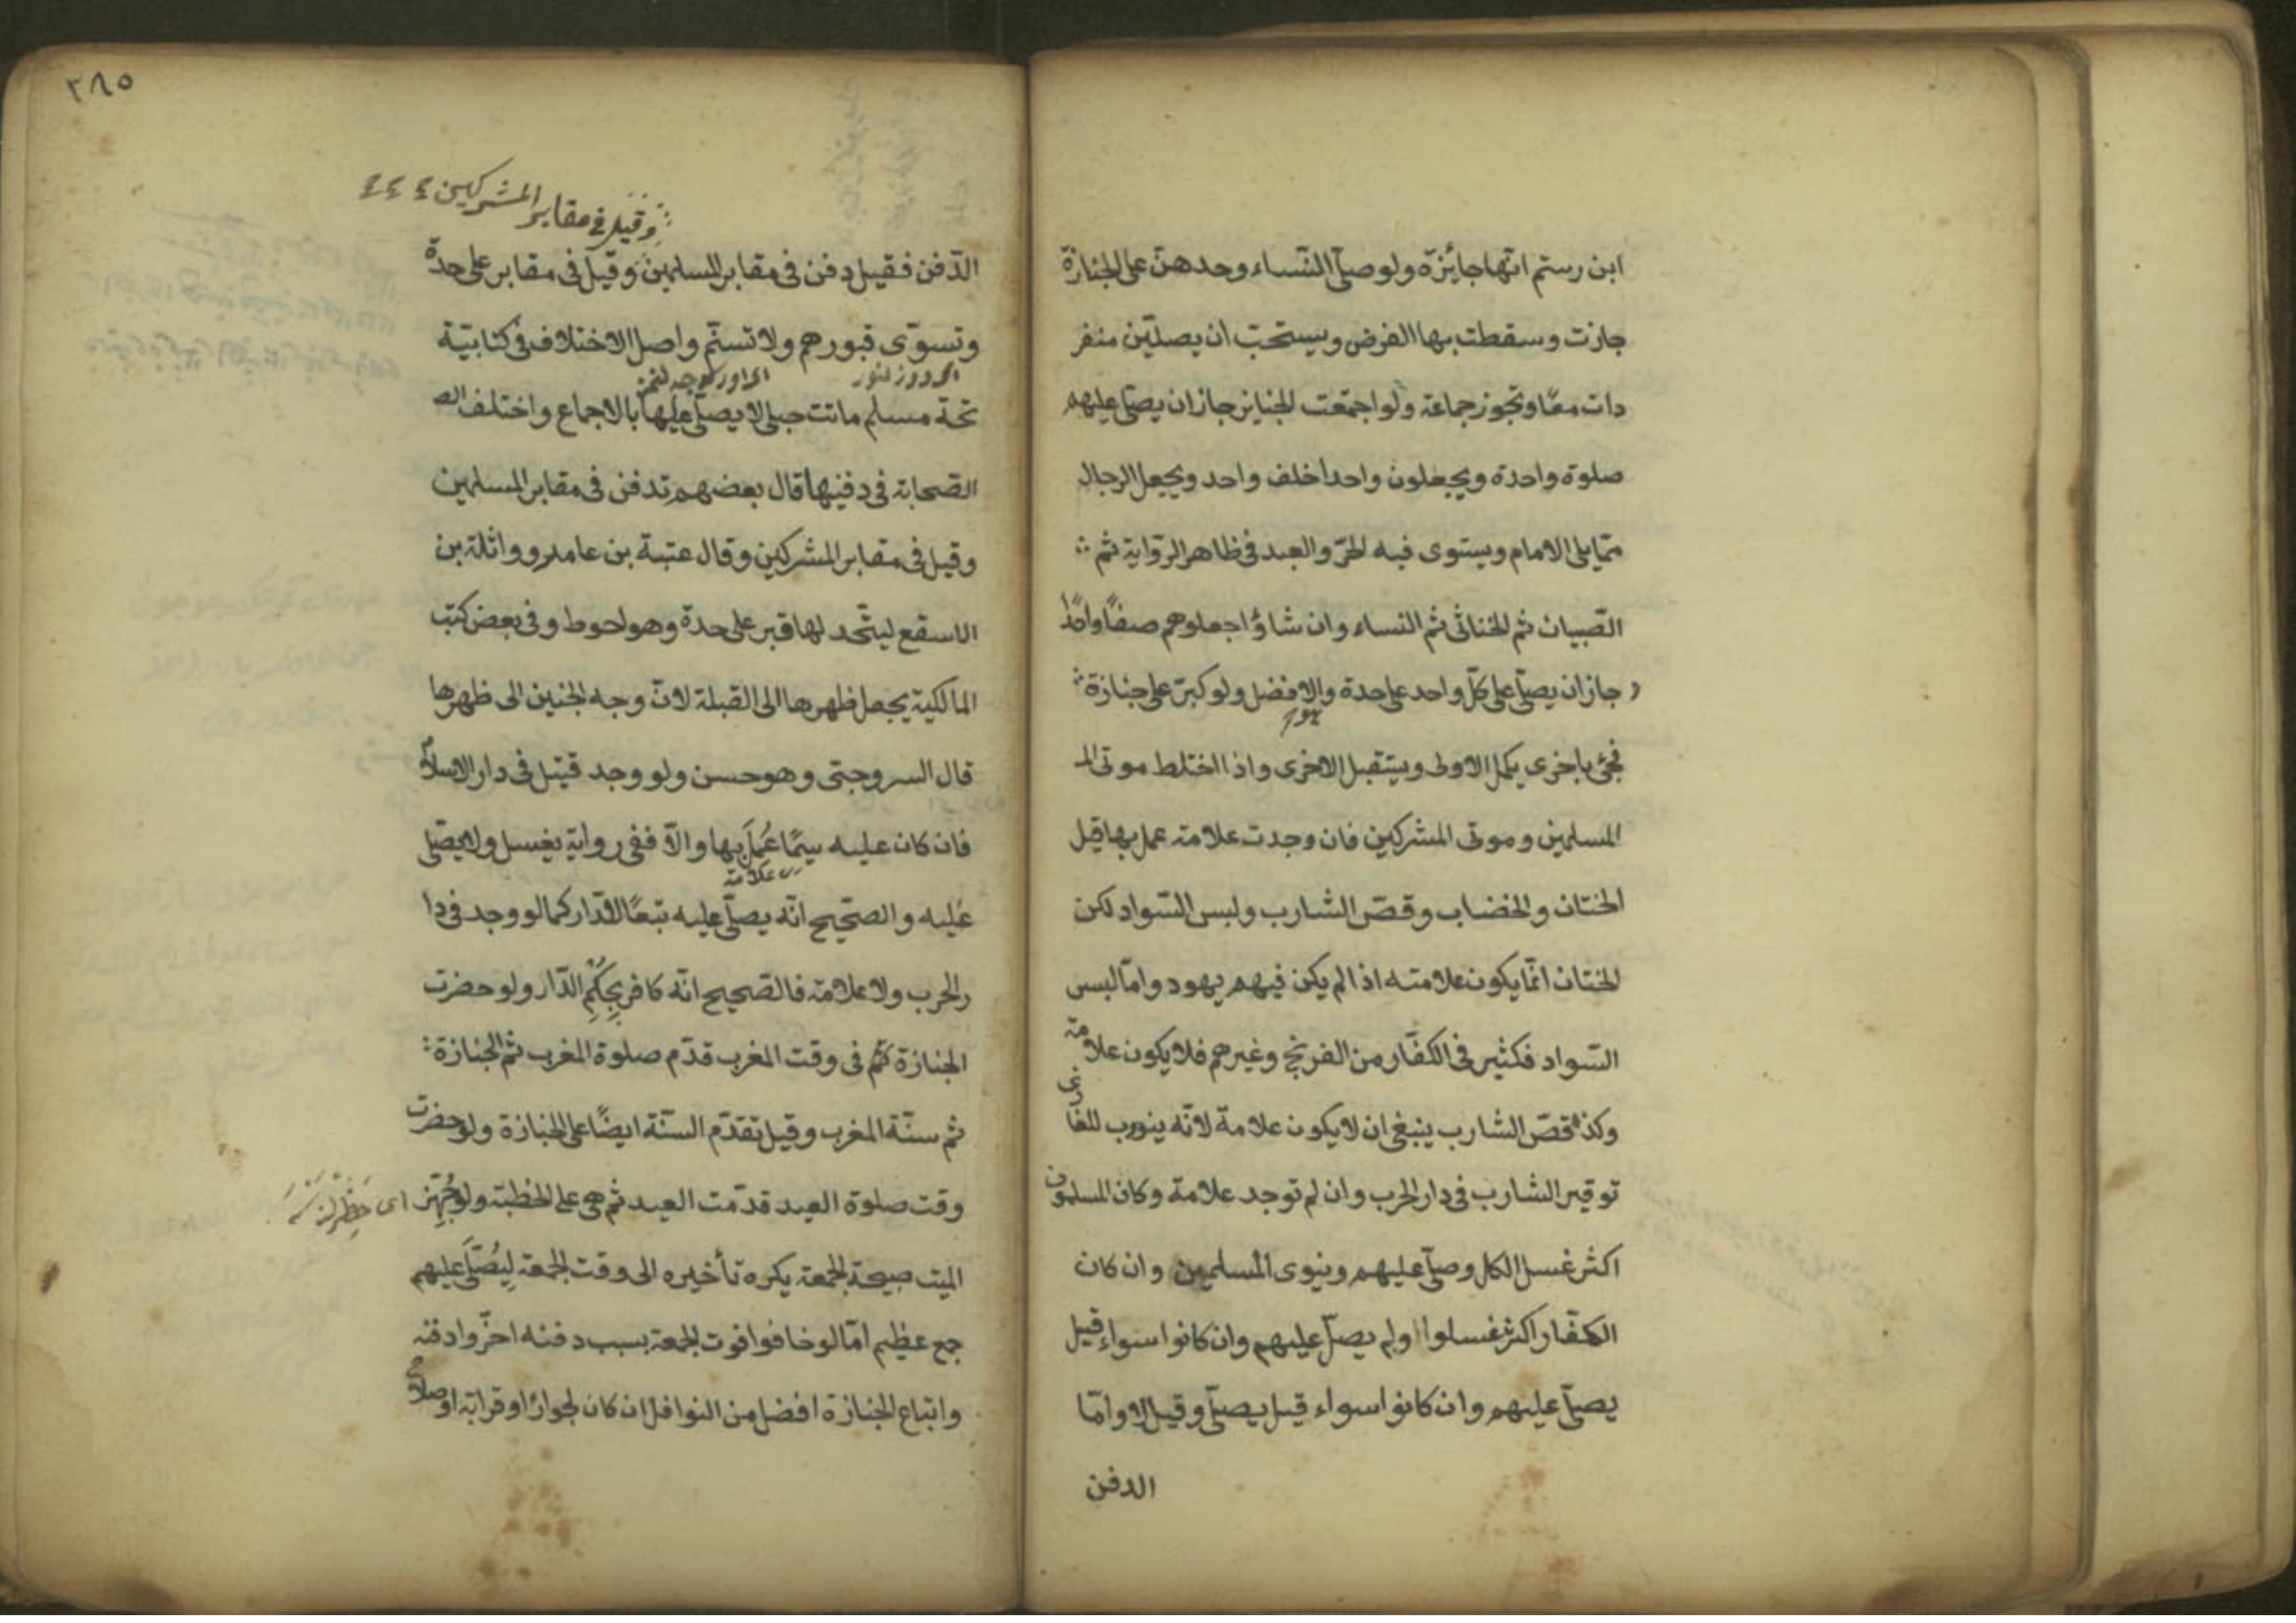 ابن رستم انّها جايزة ولو صلّى النّساء وحدهنّ على الجنازة
جازت وسقطت بها الفرض ويستحبّ ان يصلّين منفر
دات معًا وتجوز جماعة ولو اجتمعت الجنايز جاز ان يصلّى عليهم
صلوة واحدة ويجعلون واحدا خلف واحد ويجعل الرجال
ممّا يلى الامام ويستوى فيه الحرّ والعبد فى ظاهر الرّواية ثم
الصّبيان ثم الخناثى ثم النساء وان شاؤا جعلوهم صفًّا واحدًا
و جاز ان يصلّى على كلّ واحد على حدة والافضل ولو كبّر على جنازة
فجئ باخرى يكمل الاولى ويستقبل الاخرى واذا اختلط موتى الـ
المسلمين وموتى المشركين فان وجدت علامة عمل بها قيل
الختان والخضاب وقصّ الشارب ولبس السّواد لكن
الختان انّما يكون علامته اذا لم يكن فيهم يهود وامّا لبس
السّواد فكثير فى الكفّار من الفرنج وغيرهم فلا يكون علامة
وكذا قصّ الشارب ينبغى ان لا يكون علامة لانّه يندوب للغازى
توقير الشارب فى دار الحرب وان لم توجد علامة وكان المسلمون
اكثر غسل الكل وصلّى عليهم وينوى المسلمين وان كان
الكفّار اكثر غسلوا ولم يصلّ عليهم وان كانوا سواء قيل
يصلّى عليهم وان كانوا سواء قيل يصلّى وقيل لا وامّا
الدفن
٣٨٥
وقيل فى مقابر المشركين
الدّفن فقيل دفن فى مقابر المسلمين وقيل فى مقابر على حدة
وتسوّى قبورهم ولا تسنّم واصل الاختلاف فى كتابيّة
تحة مسلم ماتت حبلى لا يصلّى عليها بالاجماع واختلف الصـ
الصّحابة فى دفنها قال بعضهم تدفن فى مقابر المسلمين
وقيل فى مقابر المشركين وقال عتبة بن عامر وواثلة بن
الاسقع ليتّحد لها قبر على حدة وهو احوط وفى بعض كتب
المالكية يجعل ظهرها الى القبلة لانّ وجه الجنين الى ظهرها
قال السروجتى وهو حسن ولو وجد قتيل فى دار الاسلام
فان كان عليه سيمًا عُمِلَ بها والاّ ففى رواية يغسل ولا يصلّى
علامة
عليه والصّحيح انّه يصلّى عليه تبعًا للدّار كما لو وجد فى دا
ر الحرب ولا علامة فالصّحيح انّه كافر بحُكْمِ الدّار ولو حضرت
الجنازة ثم فى وقت المغرب قدّم صلوة المغرب ثم الجنازة
ثم سنّة المغرب وقيل تقدّم السنّة ايضًا على الجنازة ولو حضرت
وقت صلوة العيد قدّمت العيد ثم هى على الخطبة ولو جُهِّز
الميت صبيحة الجمعة يكره تأخيره الى وقت الجمعة لِيُصَلَّى عليهم
جمع عظيم امّا لو خافوا فوت الجمعة بسبب دفنه اخّروا دفنه
واتباع الجنازة افضل من النوافل ان كان لجوار او قرابة او صلاح